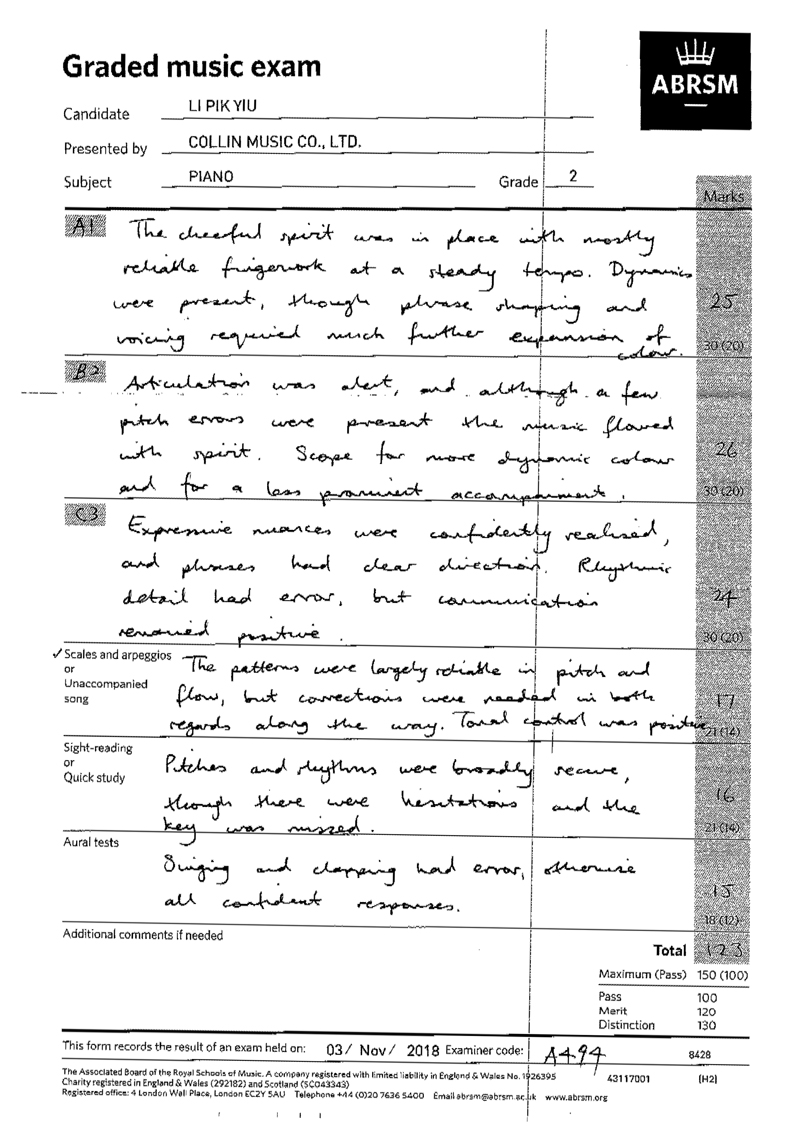 Graded music exam
ABRSM
Candidate LI PIK YIU
Presented by COLLIN MUSIC CO., LTD.
Subject PIANO Grade 2
Marks
A1 The cheerful spirit was in place with mostly
reliable fingerwork at a steady tempo. Dynamics
were present, though phrase shaping and 25
voicing required much further expansion of
colour. 30 (20)
B2 Articulation was alert, and although a few
pitch errors were present the music flowed
with spirit. Scope for more dynamic colour 26
and for a less prominent accompaniment. 30 (20)
C3 Expressive nuances were confidently realised,
and phrases had clear direction. Rhythmic
detail had error, but communication 24
remained positive. 30 (20)
✓ Scales and arpeggios
or
Unaccompanied
song
The patterns were largely reliable in pitch and
flow, but corrections were needed in both 17
regards along the way. Tonal control was positive 21 (14)
Sight-reading
or
Quick study
Pitches and rhythms were broadly secure,
though there were hesitations and the 16
key was missed. 21 (14)
Aural tests
Singing and clapping had error, otherwise 15
all confident responses. 18 (12)
Additional comments if needed
Total 123
Maximum (Pass) 150 (100)
Pass 100
Merit 120
Distinction 130
This form records the result of an exam held on: 03/ Nov/ 2018 Examiner code: A494 8428
The Associated Board of the Royal Schools of Music. A company registered with limited liability in England & Wales No. 1926395 43117001 (H2)
Charity registered in England & Wales (292182) and Scotland (SC043343)
Registered office: 4 London Wall Place, London EC2Y 5AU Telephone +44 (0)20 7636 5400 Email abrsm@abrsm.ac.uk www.abrsm.org